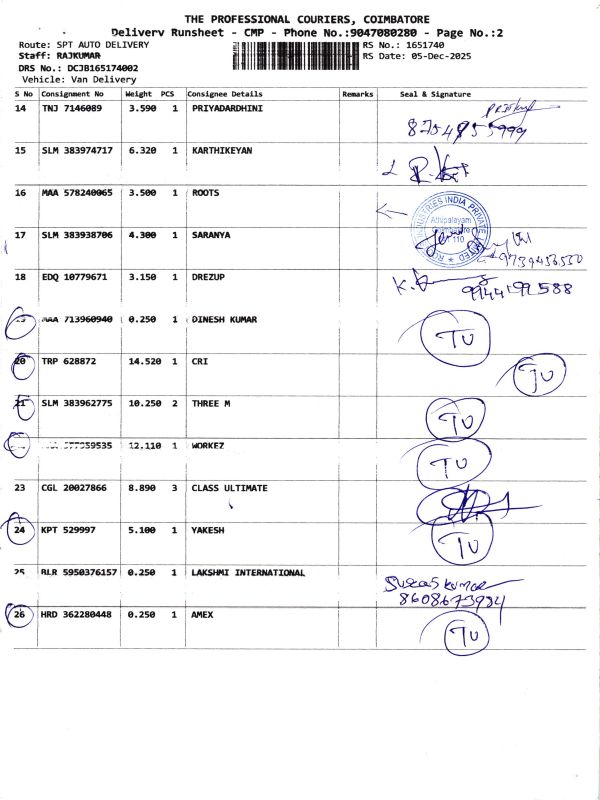 THE PROFESSIONAL COURIERS, COIMBATORE
Delivery Runsheet - CMP - Phone No.:9047080280 - Page No.:2
Route: SPT AUTO DELIVERY RS No.: 1651740
Staff: RAJKUMAR RS Date: 05-Dec-2025
DRS No.: DCJB165174002
Vehicle: Van Delivery
S No Consignment No Weight PCS Consignee Details Remarks Seal & Signature
14 TNJ 7146089 3.590 1 PRIYADARDHINI
8754955999
15 SLM 383974717 6.320 1 KARTHIKEYAN
16 MAA 578240065 3.500 1 ROOTS
INDUSTRIES INDIA PRIVATE
Athipalayam
Coimbatore
17 SLM 383938706 4.300 1 SARANYA
18 EDQ 10779671 3.150 1 DREZUP
9944191588
MAA 713960940 0.250 1 DINESH KUMAR TU
20 TRP 628872 14.520 1 CRI TU
21 SLM 383962775 10.250 2 THREE M TU
12.110 1 WORKEZ TU
23 CGL 20027866 8.890 3 CLASS ULTIMATE
24 KPT 529997 5.100 1 YAKESH TU
25 BLR 5950376157 0.250 1 LAKSHMI INTERNATIONAL
8608673994
26 HRD 362280448 0.250 1 AMEX TU